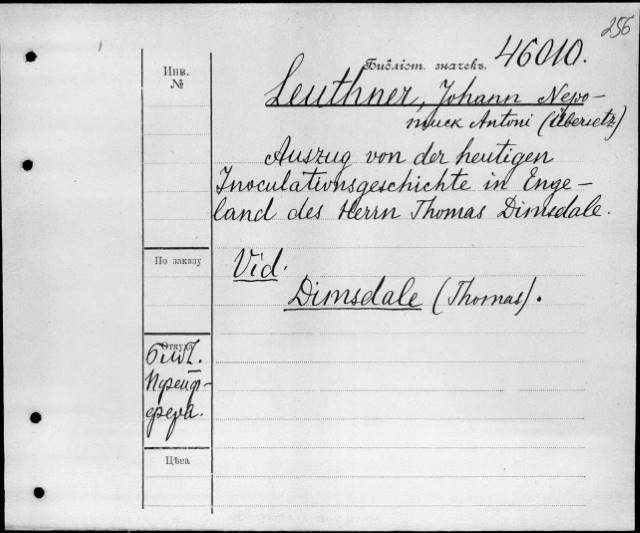 256
Библіот. значекъ. 46010.
Инв.
№
Leuthner, Johann Nepo-
muck Antoni (Übersetz)
Auszug von der heutigen
Inoculationsgeschichte in Enge-
land des Herrn Thomas Dimsdale.
По заказу
Vid.
Dimsdale (Thomas).
Откуда
Библ.
Пфейф-
фера.
Цѣна